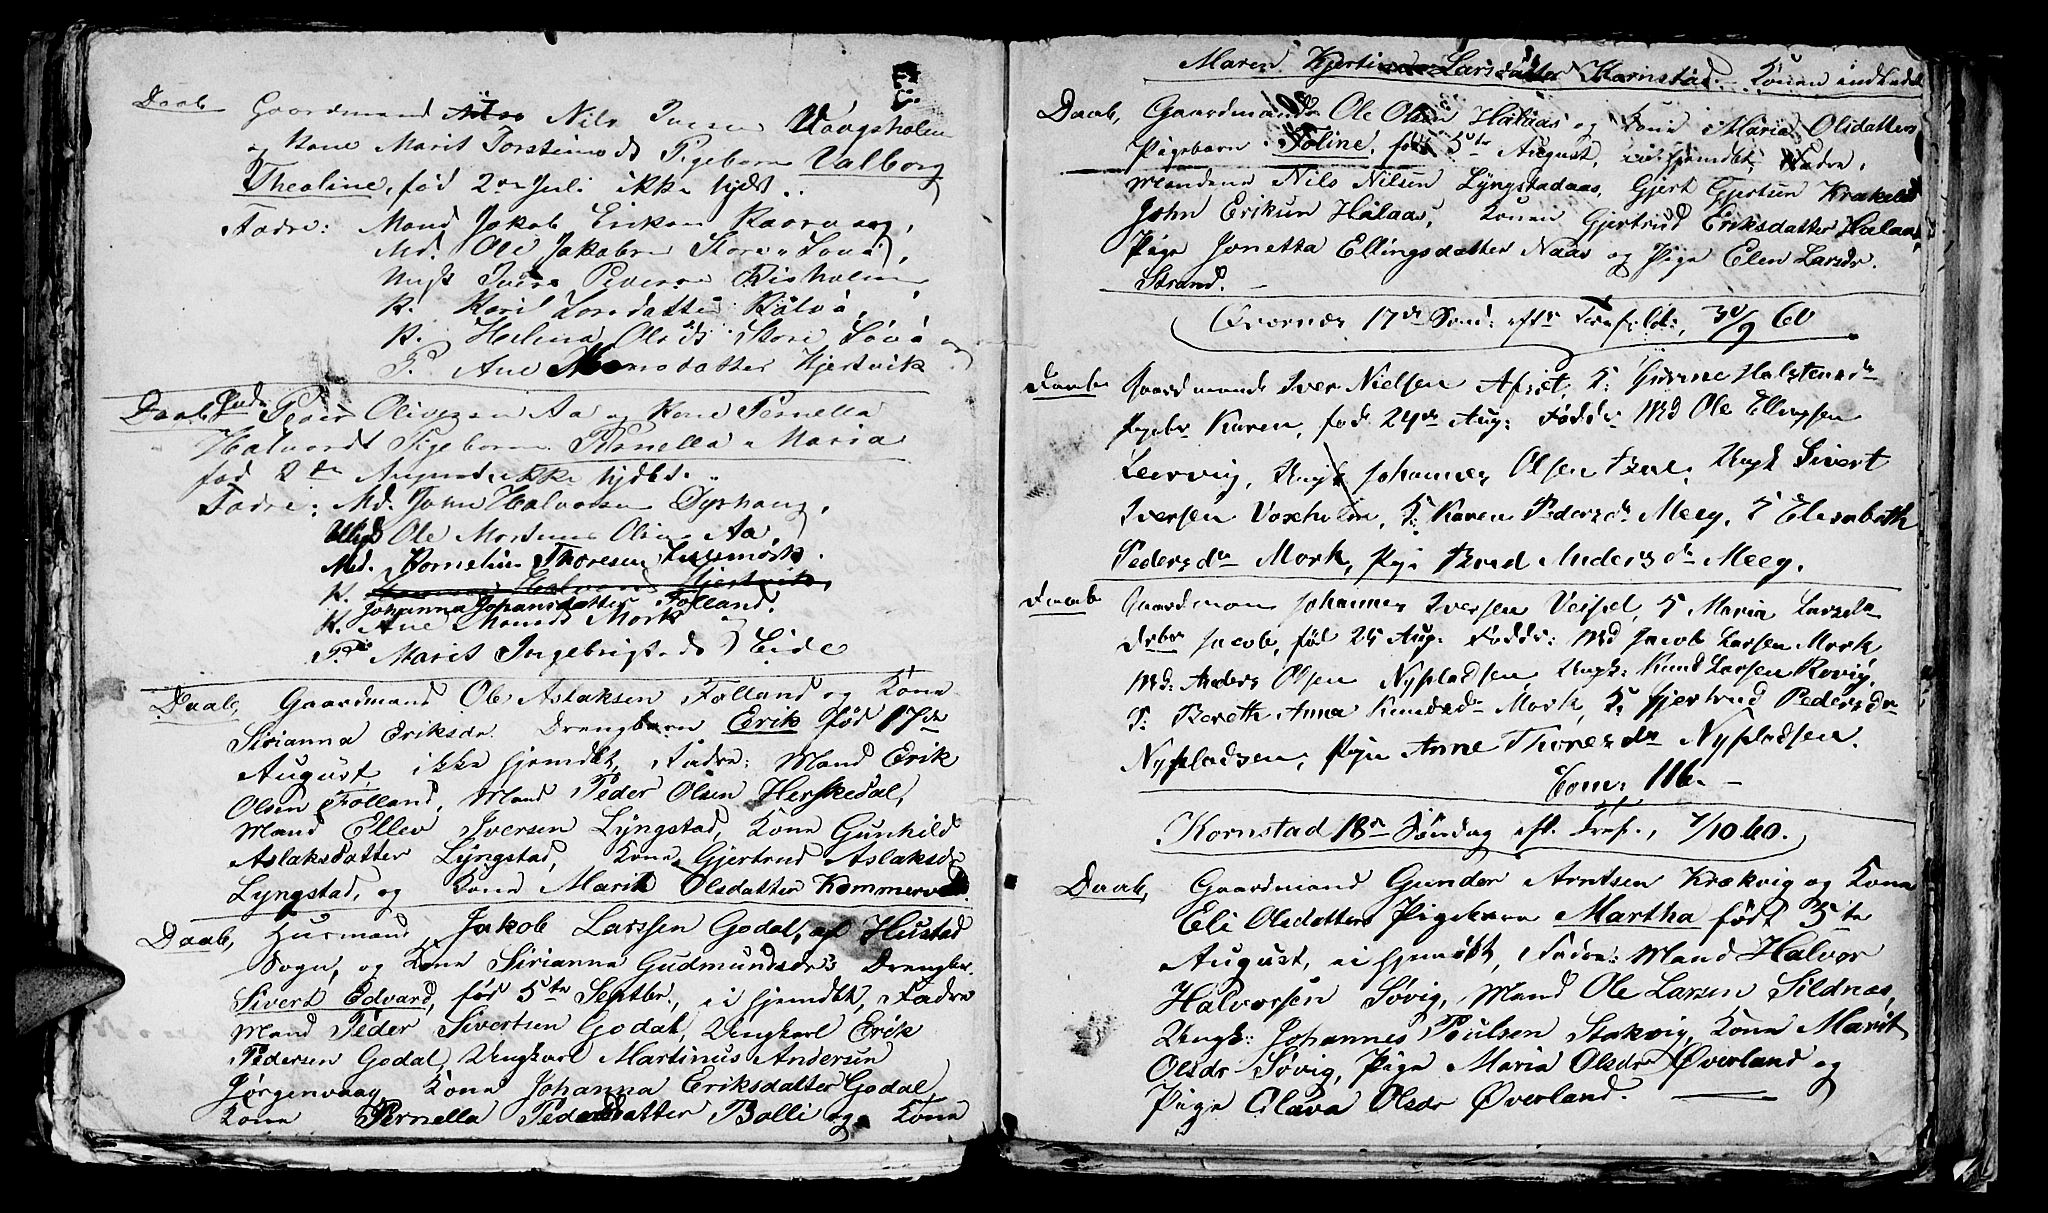 Daab Gaardmand Nils Iversen Vaagsholm
og Kone Marit Torstensd. Pigebarn Valborg
Thealine, fød 2den Juli ikke hjdt.
Fadre: Mand Jakob Eriksen
Md. Ole Jakobsen Store Søvå,
Ungk Iver Pedersen Risholm
K. Kari Larsdatter
K. Helena Olsd. Store Søvå og
P. Ane Monsdatter Hjertvik
Daab Grd. Peder Oliversen Aa og Kone Pernella
Halvordt Pigebarn Pernella Maria
fød 2de August, ikke hjdbt.
Fadre: Md. John Halvorsen Dyrhaug,
Ungk Ole Mortensen Aa
Md. Kornelius Thoresen
K.
Johanna Johansdatter Folland.
K. Ane Monsd. Mork og
P. Marit Ingebrigtsd. Eide
Daab, Gaardmand Ole Aslaksen Folland og Kone
Sirianna Eriksdr. Drengbarn Erik fød 17de
August, ikke hjemdbt, Fadre: Mand Erik
Olsen Folland, Mand Peder Olsen Herskedal,
Mand Ellev Iversen Lyngstad, Kone Gunhild
Aslaksdatter Lyngstad, Kone Gjertrud Aslaksdr
Lyngstad, og Kone Marit Olsdatter
Daab, Husmand Jakob Larssen Godal, af Hustad
Sogn, og Kone Sirianna Gudmundsdrs Drengbr.
Sivert Edvard, fød 5te Septbr., ei hjemdbt, Fadre
Mand Peder Sivertsen Godal, Ungkarl Erik
Pedersen Godal, Ungkarl Martinus Andersen
Jørgenvaag, Kone Johanna Eriksdatter Godal
Kone Pernella Pedersdatter Bolli og Kone
Maren Larsdatter Kornstad. Konen
Daab, Gaardmand Ole Olsen Halaas og Kone Maria Olsdatters
Pigebarn Toline, fød 5te August, ei hjemdbt, Fadre:
Mandene Nils Nilsen Lyngstadaas, Gjert Gjertsen
John Eriksen Halaas, Konen Gjertrud Eriksdatter Halaas,
Pige Jonetta Ellingsdatter Naas og Pige Elen Larsdr.
Strand.
17de Sønd: eftr Trefoldt:, 30/9 60
Daab Gaardmand Iver Nielsen K. Gurine Halstensdr
Pigebr Karen, fød 24de Aug: Faddr: Md Ole Ellingsen
Leervig, Ungk Johannes Olsen Ungk Sivert
Iversen Voxholm, K: Karen Pedersdr Meeg, K Elisabeth
Pedersdr Mork, Pige Andersdr Meeg.
Daab Gaardmand Johannes Iversen Veiset, K Maria Larsdr
Drbr Jacob, fød 25 Aug. Faddr: Md Jacob Larsen Mork
Md: Anders Olsen Nypladsen Ungk: Knud Larsen Rovig,
K: Bereth Anna Knudsdr Mork, K: Gjertrud Pedersdr
Nypladsen, Pige Anne Thoresdr Nypladsen.
Com: 116.
Kornstad 18de Søndag eft. Tref., 7/10 60.
Daab, Gaardmand Gunder Arntsen Krækvig og Kone
Eli Olsdatters Pigebarn Martha født 5te
August, ei hjemdbt, Fadre: Mand Halvor
Halvorsen Søvig, Mand Ole Larsen Sildnas,
Ungk: Johannes Poulsen Stakvig, Kone Marit
Olsdr Søvig, Pige Maria Olsdr Øverland og
Pige Olava Olsdr Øverland.